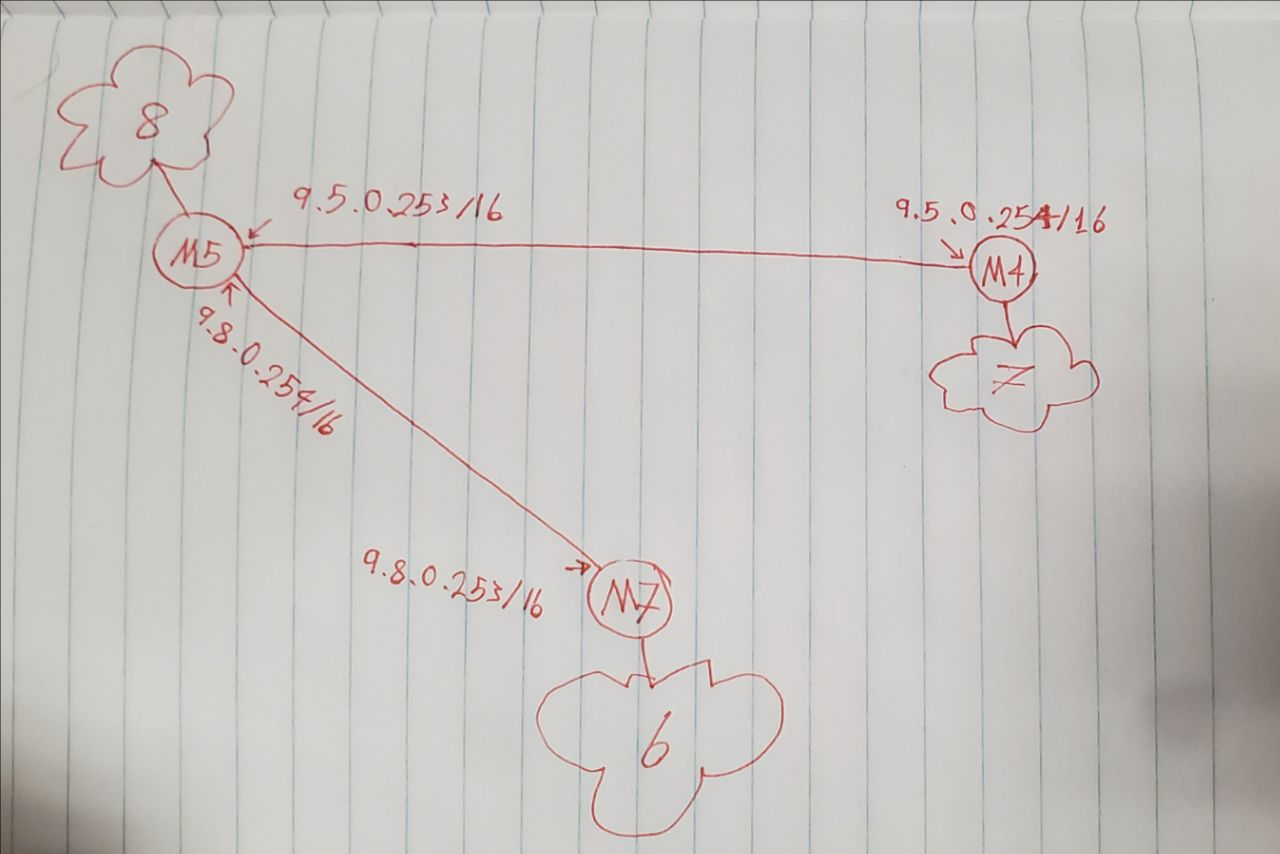 8
9.5.0.253/16
9.5.0.254/16
M5
M4
9.8.0.254/16
7
9.8.0.253/16
M7
6